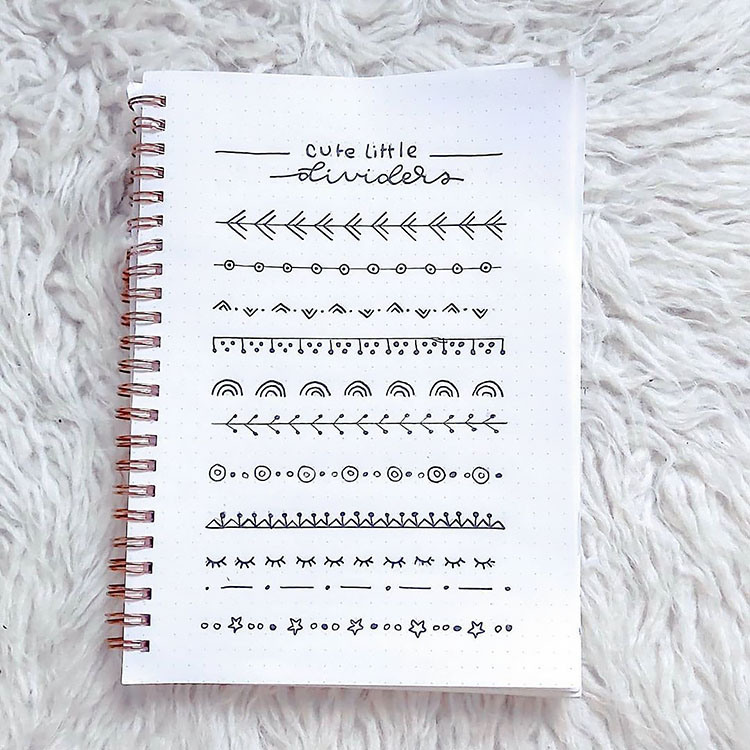 cute little
dividers